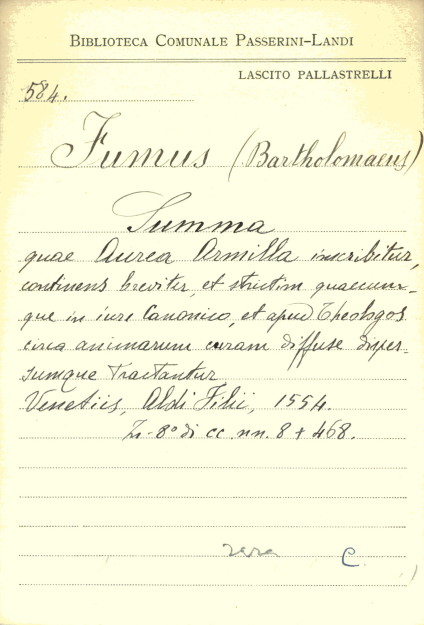 BIBLIOTECA COMUNALE PASSERINI-LANDI
LASCITO PALLASTRELLI
584.
Fumus (Bartholomaeus)
Summa
quae Aurea Armilla inscribitur,
continens breviter, et strictim quaecum-
que in iure Canonico, et apud Theologos
circa animarum curam diffuse disper-
sumque tractantur
Venetiis, Aldi Filii, 1554.
In-8° di cc. nn. 8 + 468.
C.